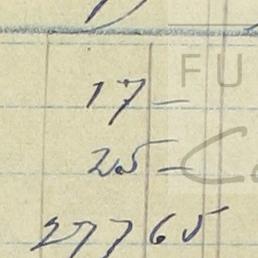 FU
17 –
25 –
277 65